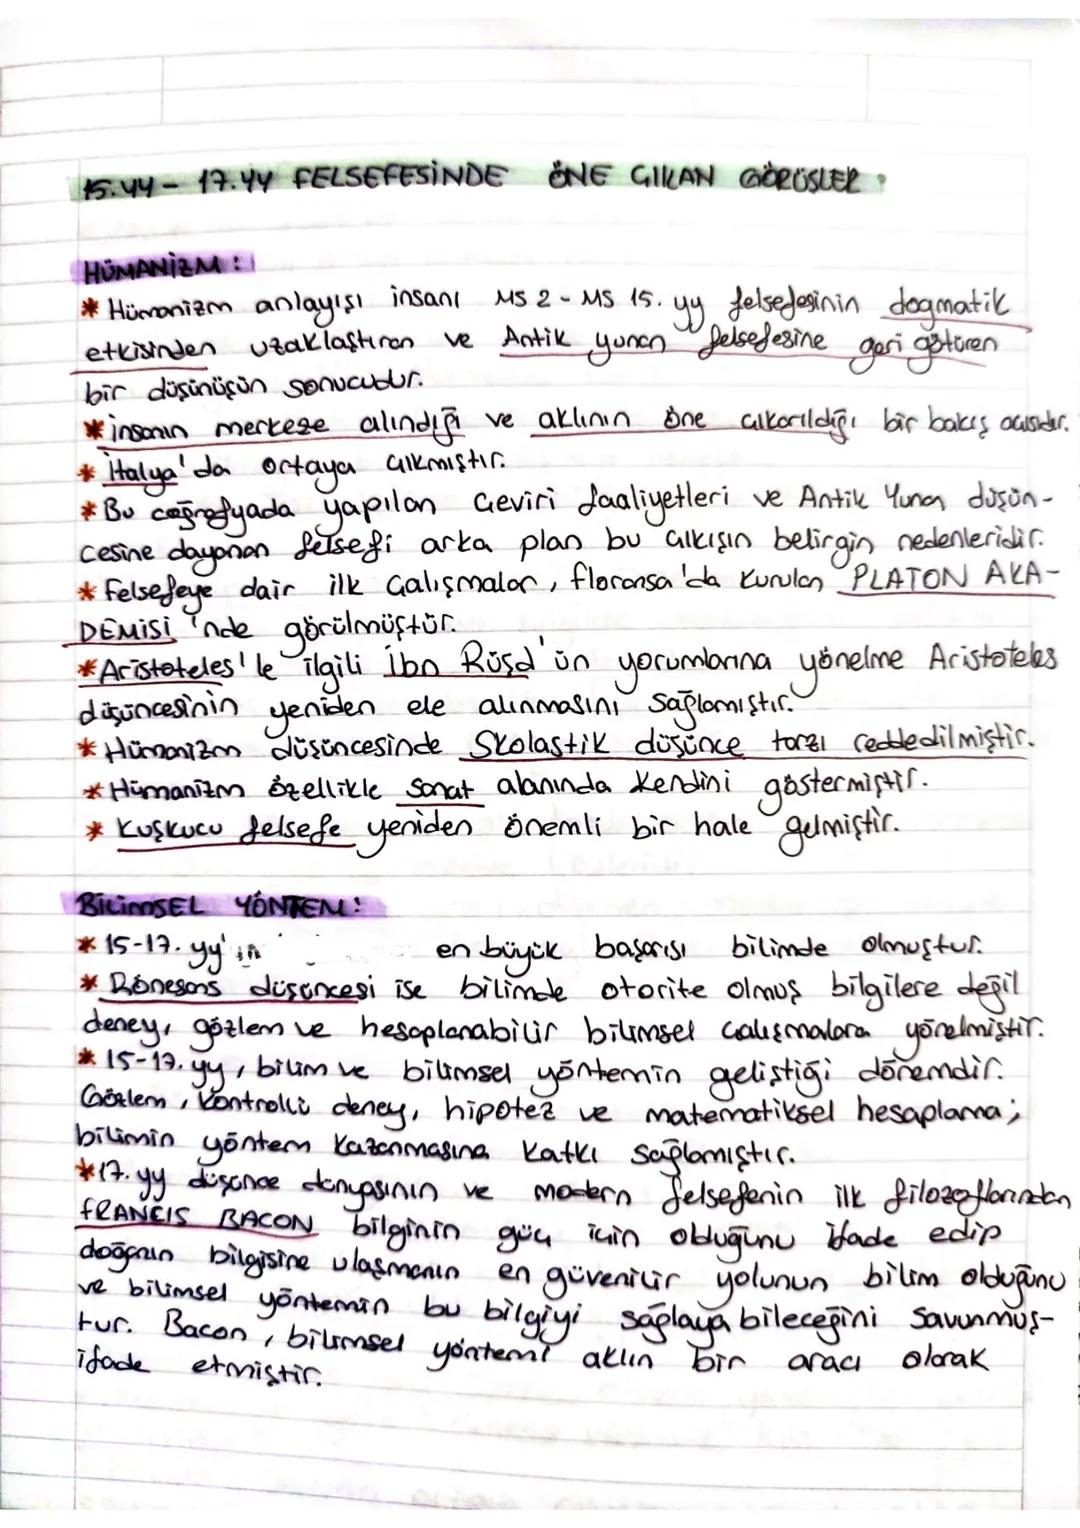 15.YY - 17.YY FELSEFESİNDE ÖNE ÇIKAN GÖRÜŞLER
HÜMANİZM:
* Hümanizm anlayışı insanı MS 2 - MS 15. yy felsefesinin dogmatik
etkisinden uzaklaştıran ve Antik yunan felsefesine geri götüren
bir düşünüşün sonucudur.
* insanın merkeze alındığı ve aklının öne çıkarıldığı bir bakış açısıdır.
* İtalya'da ortaya çıkmıştır.
* Bu coğrafyada yapılan çeviri faaliyetleri ve Antik Yunan düşün-
cesine dayanan felsefi arka plan bu çıkışın belirgin nedenleridir.
* Felsefeye dair ilk çalışmalar, floransa'da kurulan PLATON AKA-
DEMİSİ'nde görülmüştür.
* Aristoteles'le ilgili İbn Rüşd'ün yorumlarına yönelme Aristoteles
düşüncesinin yeniden ele alınmasını sağlamıştır.
* Hümanizm düşüncesinde Skolastik düşünce tarzı reddedilmiştir.
* Hümanizm özellikle sanat alanında kendini göstermiştir.
* Kuşkucu felsefe yeniden önemli bir hale gelmiştir.
BİLİMSEL YÖNTEM:
* 15-17. yy'ın en büyük başarısı bilimde olmuştur.
* Rönesans düşüncesi ise bilimde otorite olmuş bilgilere değil
deney, gözlem ve hesaplanabilir bilimsel çalışmalara yönelmiştir.
* 15-17. yy, bilim ve bilimsel yöntemin geliştiği dönemdir.
Gözlem, kontrollü deney, hipotez ve matematiksel hesaplama;
bilimin yöntem kazanmasına katkı sağlamıştır.
* 17. yy düşünce dünyasının ve modern felsefenin ilk filozoflarından
FRANCIS BACON bilginin güç için olduğunu ifade edip
doğanın bilgisine ulaşmanın en güvenilir yolunun bilim olduğunu
ve bilimsel yöntemin bu bilgiyi sağlayabileceğini savunmuş-
tur. Bacon, bilimsel yöntemi aklın bir aracı olarak
ifade etmiştir.